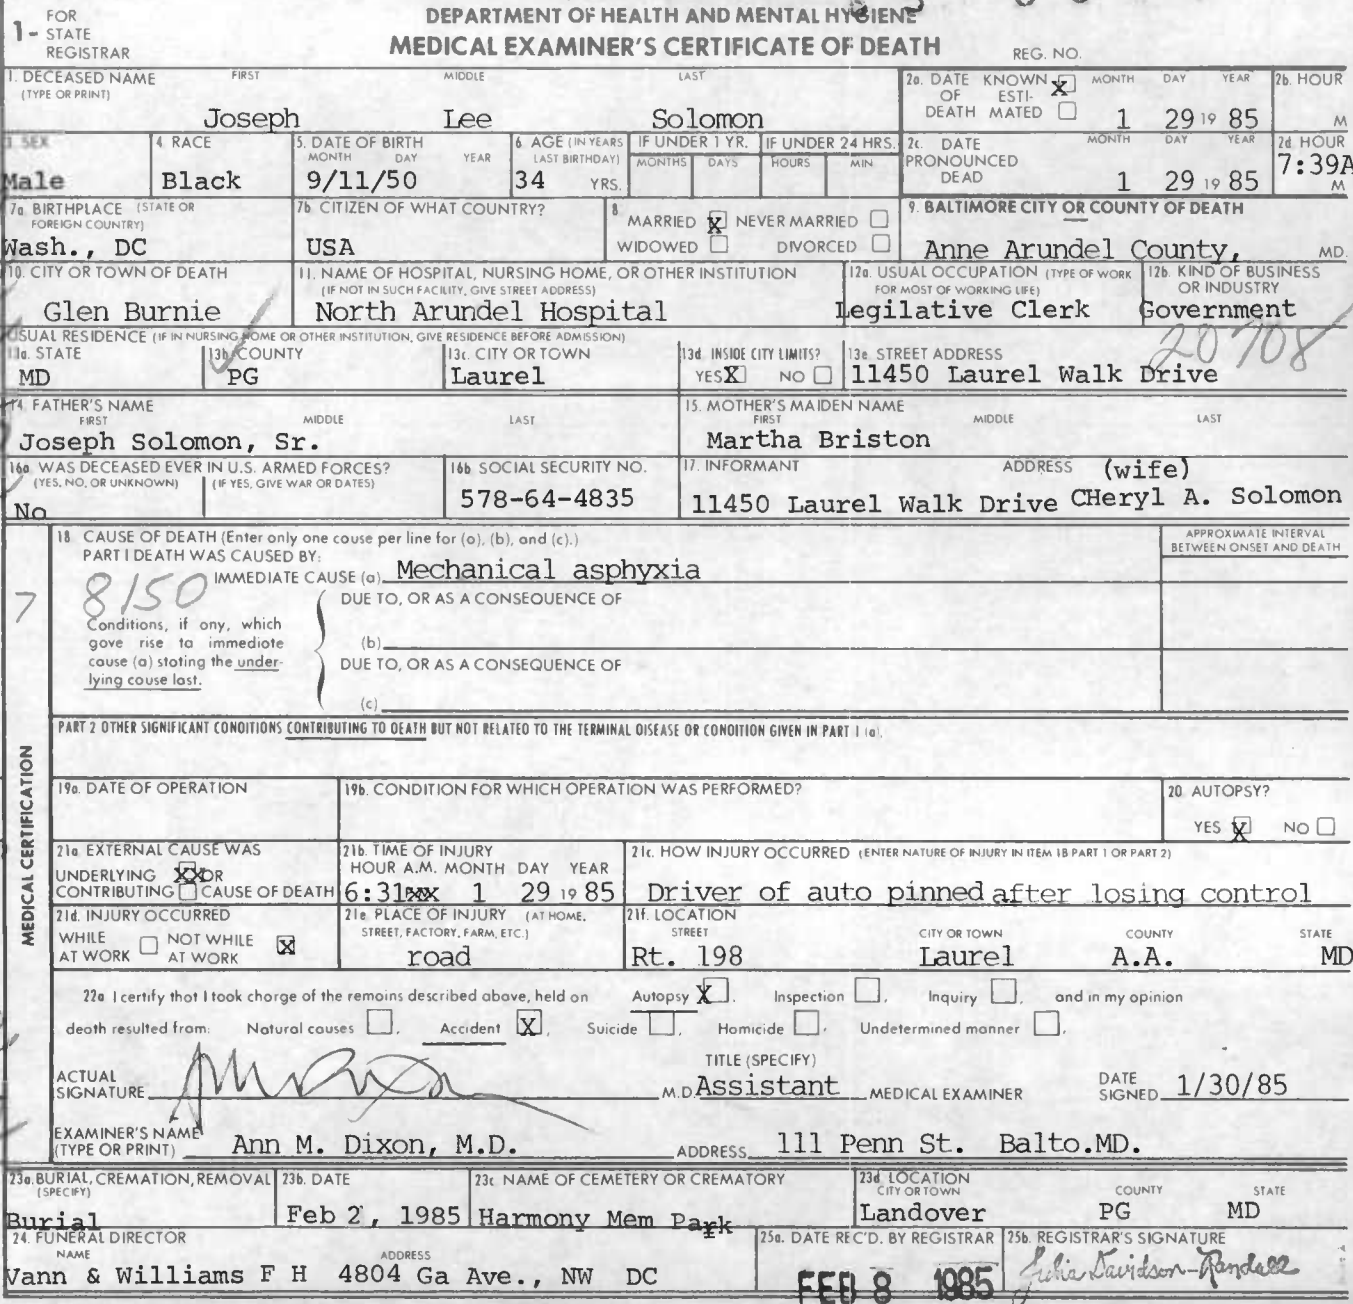 FOR
1- STATE
REGISTRAR
DEPARTMENT OF HEALTH AND MENTAL HYGIENE
MEDICAL EXAMINER'S CERTIFICATE OF DEATH
REG. NO.
1. DECEASED NAME FIRST MIDDLE LAST
(TYPE OR PRINT)
Joseph Lee Solomon
2a. DATE KNOWN X MONTH DAY YEAR
OF ESTI-
DEATH MATED
1 29 19 85
2b. HOUR
M
3. SEX
Male
4. RACE
Black
5. DATE OF BIRTH
MONTH DAY YEAR
9/11/50
6. AGE (IN YEARS
LAST BIRTHDAY)
34 YRS.
IF UNDER 1 YR.
MONTHS DAYS
IF UNDER 24 HRS.
HOURS MIN
2c. DATE MONTH DAY YEAR
PRONOUNCED
DEAD
1 29 19 85
2d HOUR
7:39A
M
7a BIRTHPLACE (STATE OR
FOREIGN COUNTRY)
Wash., DC
7b CITIZEN OF WHAT COUNTRY?
USA
8.
MARRIED X NEVER MARRIED
WIDOWED DIVORCED
9. BALTIMORE CITY OR COUNTY OF DEATH
Anne Arundel County, MD.
10. CITY OR TOWN OF DEATH
Glen Burnie
11. NAME OF HOSPITAL, NURSING HOME, OR OTHER INSTITUTION
(IF NOT IN SUCH FACILITY, GIVE STREET ADDRESS)
North Arundel Hospital
12a. USUAL OCCUPATION (TYPE OF WORK
FOR MOST OF WORKING LIFE)
Legilative Clerk
12b. KIND OF BUSINESS
OR INDUSTRY
Government
USUAL RESIDENCE (IF IN NURSING HOME OR OTHER INSTITUTION, GIVE RESIDENCE BEFORE ADMISSION)
13a. STATE
MD
13b. COUNTY
PG
13c. CITY OR TOWN
Laurel
13d. INSIDE CITY LIMITS?
YES X NO
13e STREET ADDRESS
11450 Laurel Walk Drive
20708
14. FATHER'S NAME
FIRST MIDDLE LAST
Joseph Solomon, Sr.
15. MOTHER'S MAIDEN NAME
FIRST MIDDLE LAST
Martha Briston
16a WAS DECEASED EVER IN U.S. ARMED FORCES?
(YES, NO, OR UNKNOWN) (IF YES, GIVE WAR OR DATES)
No
16b SOCIAL SECURITY NO.
578-64-4835
17. INFORMANT ADDRESS (wife)
11450 Laurel Walk Drive CHeryl A. Solomon
18 CAUSE OF DEATH (Enter only one cause per line for (a), (b), and (c).)
PART I DEATH WAS CAUSED BY:
IMMEDIATE CAUSE (a) Mechanical asphyxia
APPROXIMATE INTERVAL
BETWEEN ONSET AND DEATH
7
8150
DUE TO, OR AS A CONSEQUENCE OF
Conditions, if any, which
gave rise to immediate
cause (a) stating the under-
lying cause last.
(b)
DUE TO, OR AS A CONSEQUENCE OF
(c)
PART 2 OTHER SIGNIFICANT CONDITIONS CONTRIBUTING TO DEATH BUT NOT RELATED TO THE TERMINAL DISEASE OR CONDITION GIVEN IN PART 1 (a).
MEDICAL CERTIFICATION
19a. DATE OF OPERATION
19b. CONDITION FOR WHICH OPERATION WAS PERFORMED?
20. AUTOPSY?
YES X NO
21a. EXTERNAL CAUSE WAS
UNDERLYING XX OR
CONTRIBUTING CAUSE OF DEATH
21b. TIME OF INJURY
HOUR A.M. MONTH DAY YEAR
6:31xx 1 29 19 85
21c. HOW INJURY OCCURRED (ENTER NATURE OF INJURY IN ITEM 18 PART 1 OR PART 2)
Driver of auto pinned after losing control
21d. INJURY OCCURRED
WHILE NOT WHILE X
AT WORK AT WORK
21e PLACE OF INJURY (AT HOME,
STREET, FACTORY, FARM, ETC.)
road
21f. LOCATION
STREET CITY OR TOWN COUNTY STATE
Rt. 198 Laurel A.A. MD
22a I certify that I took charge of the remains described above, held on Autopsy X, Inspection , Inquiry , and in my opinion
death resulted from: Natural causes , Accident X, Suicide , Homicide , Undetermined manner ,
ACTUAL
SIGNATURE
TITLE (SPECIFY)
M.D. Assistant MEDICAL EXAMINER
DATE
SIGNED 1/30/85
EXAMINER'S NAME
(TYPE OR PRINT) Ann M. Dixon, M.D.
ADDRESS 111 Penn St. Balto.MD.
23a. BURIAL, CREMATION, REMOVAL
(SPECIFY)
Burial
23b. DATE
Feb 2, 1985
23c NAME OF CEMETERY OR CREMATORY
Harmony Mem Park
23d LOCATION
CITY OR TOWN COUNTY STATE
Landover PG MD
24. FUNERAL DIRECTOR
NAME ADDRESS
Vann & Williams F H 4804 Ga Ave., NW DC
25a. DATE REC'D. BY REGISTRAR
FEB 8 1985
25b. REGISTRAR'S SIGNATURE
Julia Davidson-Randall